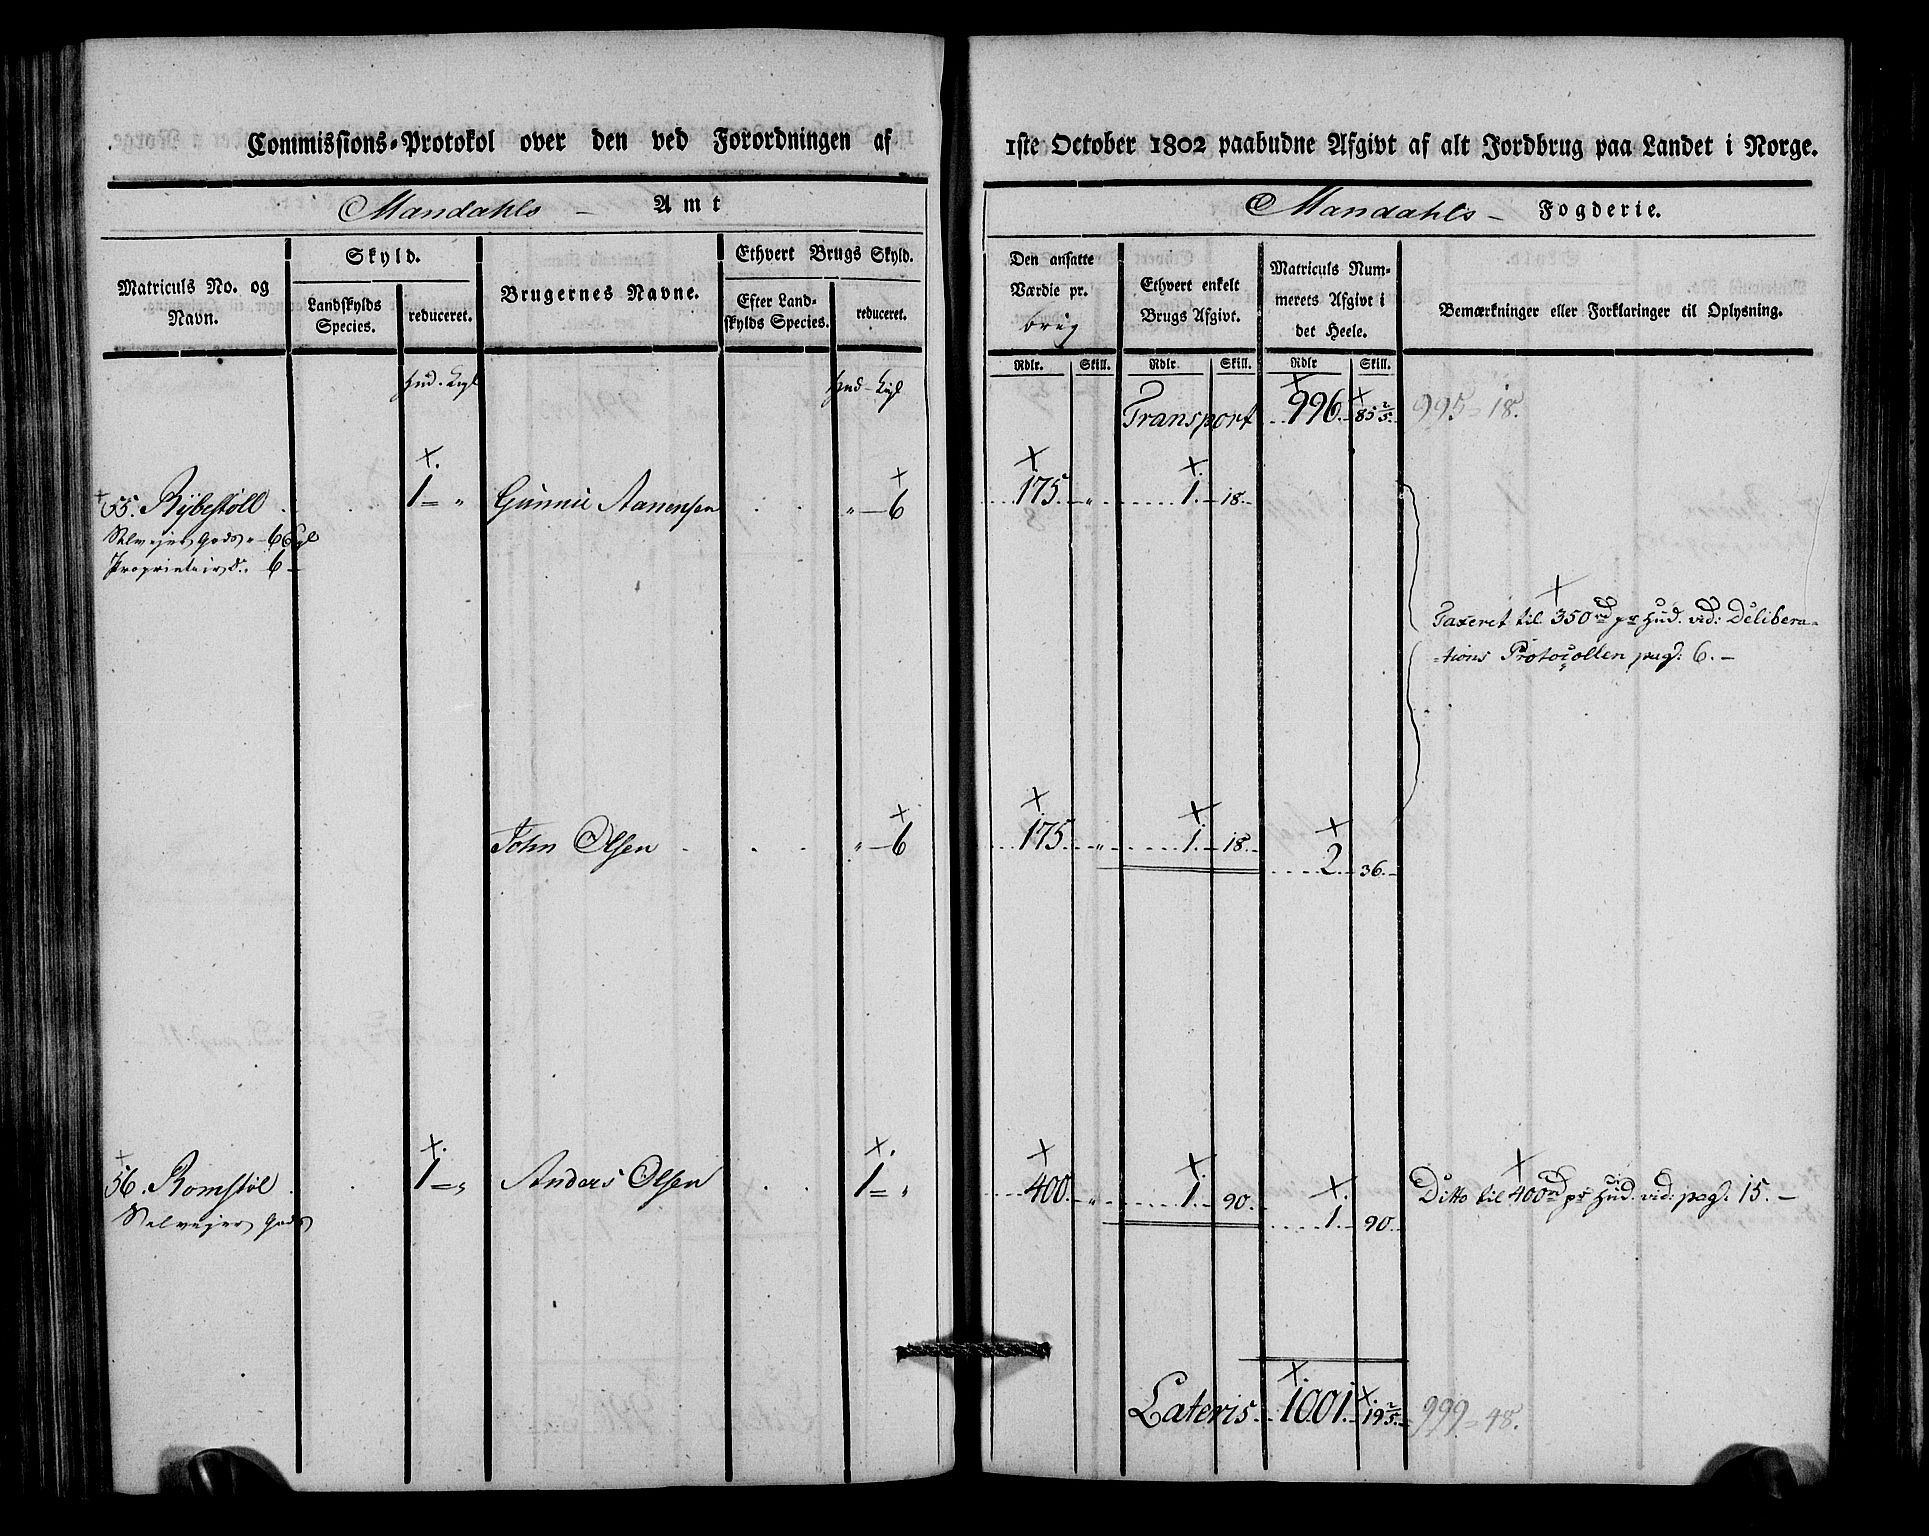 Commissions-Protokol over den ved Forordningen af
Mandahls - Amt
Matriculs No. og Navn.
Skyld.
Landskylds Species.
reduceret.
Brugernes Navne.
Ethvert Brugs Skyld.
Efter Landskylds Species.
reduceret.
Hud. Kgl
Hud - Kgl
55. Rybestöll 1 = " Gunnu Aanensen " - 6
Selvejer Gods " - 6 Kgl
Proprietair do. 6 -
John Olsen " - 6
56. Romstöl 1 = " Anders Olsen 1 = "
Selvejer Gods
1ste October 1802 paabudne Afgivt af alt Jordbrug paa Landet i Norge.
Mandahls - Fogderie.
Den ansatte Værdie pr. brug
Ethvert enkelt Brugs Afgivt.
Matriculs Nummerets Afgivt i det Heele.
Bemærkninger eller Forklaringer til Oplysning.
Rdlr. Skill. Rdlr. Skill. Rdlr Skill.
Transport 996. - 85 2/5. 995 = 18.
175. - " 1. - 18. -
Taxeret til 350 rd pr Hud. vid: Delibera-
-tions Protocollen pag: 6. -
175. - " 1. - 18. -
2. - 36. -
400. - " 1. - 90. - Ditto til 400 rd pr Hud. vid: pag: 15. -
1. - 90. -
Lateris. 1001. - 19 2/5. 999 = 48.